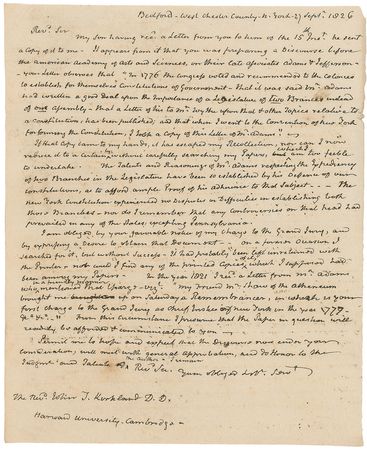 Bedford - West Chester County - N. York - 27 Sept.r 1826
Rev.d Sir
My son having rec.d a Letter from you to him of the 15th Inst. he sent
a Copy of it to me - It appears from it that you were preparing a Discourse before
the American Academy of Arts and Sciences, on their late associates Adams & Jefferson -
your Letter observes that "In 1776 the Congress voted and recommended to the Colonies
to establish for themselves Constitutions of Government - that it was said Mr. Adams
had written a good deal upon the Importance of a Legislature of two Branches instead
of one Assembly - that a Letter of his to Mr. Wythe upon that & other Topics relative to
a constitution, has been published, and that when I went to the Convention of New York
for forming the Constitution, I took a Copy of this Letter of Mr. Adams" -
If that Copy came to my hands, it has escaped my Recollection, nor can I now
reduce it to a certainty without carefully searching my Papers, which I am not able
to undertake - The Talents and Reasonings of Mr. Adams respecting the Expediency
of two Branches in the Legislature have been so established by his Defence of our
constitutions, as to afford ample Proof of his adherence to that Subject - - - The
New York Constitution experienced no Disputes or Difficulties in establishing both
those Branches - nor do I remember that any controversies on that head had
prevailed in any of the States, excepting Pennsylvania -
I am obliged by your favorable notice of my Charge to the Grand Jury, and
by expressing a Desire to obtain that Document - on a former occasion I
searched for it, but without success - It had probably been left unreturned with
the Printer - nor could I find any of the printed Copies, which I supposed had
been among my Papers - In the year 1821 I rec.d a Letter from Mr. Adams
who mentioned that Charge - viz.t "my Friend Mr. Shaw of the Atheneum
in a friendly manner
brought me up on Saturday a Remembrancer, in which is your
first charge to the Grand Jury as Chief Justice of New York in the year 1777
&c. &c. -" From this circumstance I presume that the Paper in question will
readily be afforded & communicated to you -
Permit me to hope and expect that the Discourse now under your
Consideration, will meet with general Approbation, and do Honor to the
Judgment and Talents of the Author - I remain
Rev.d Sir your obliged & ob.t Serv.t
The Rev.d John T. Kirkland D. D.
Harvard University - Cambridge -